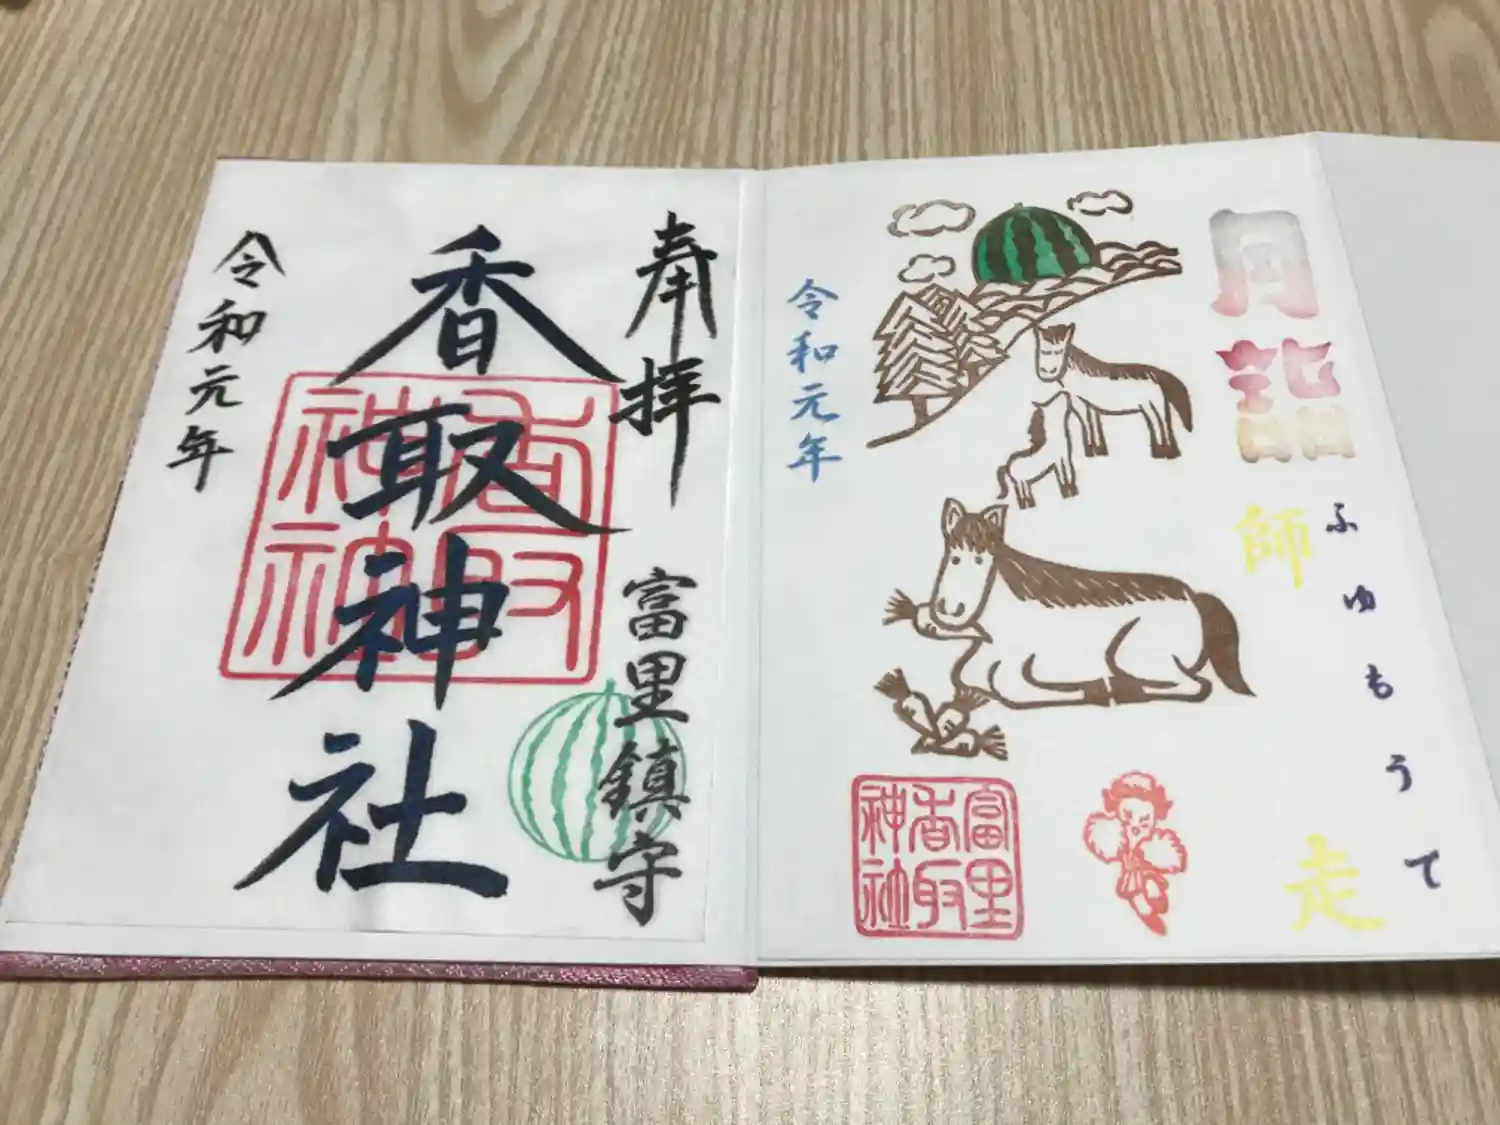 奉拝
富里鎮守
香取神社
香取神社
令和元年
月詣
師走
ふゆもうで
令和元年
富里香取神社